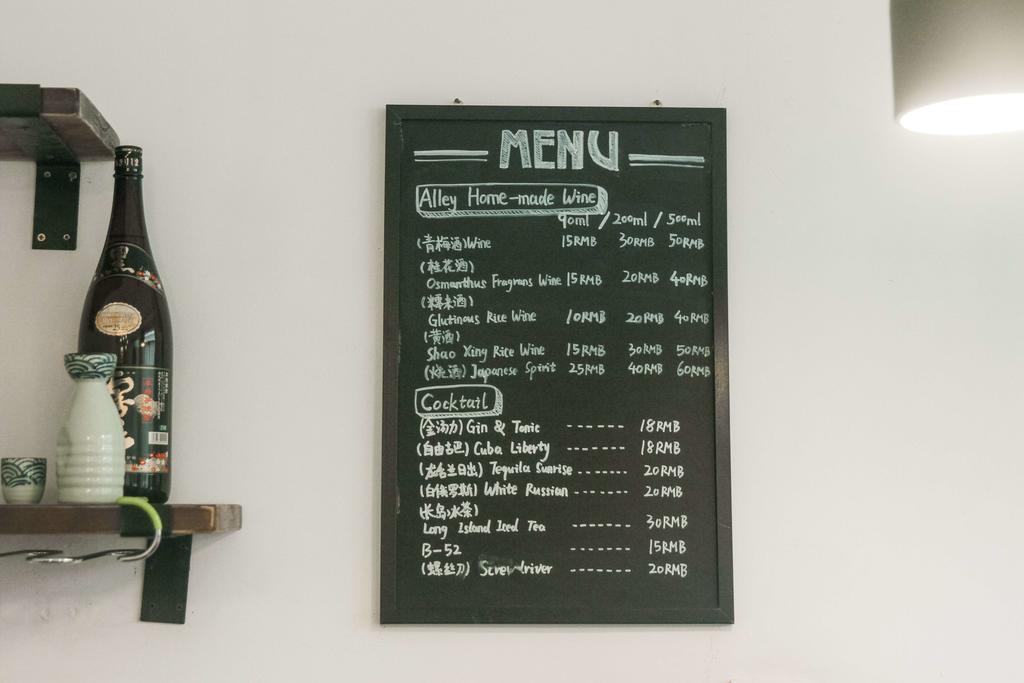 MENU
Alley Home-made Wine
90ml / 200ml / 500ml
(青梅酒)Wine 15RMB 30RMB 50RMB
(桂花酒)
Osmanthus Fragrans Wine 15RMB 20RMB 40RMB
(糯米酒)
Glutinous Rice Wine 10RMB 20RMB 40RMB
(黄酒)
Shao Xing Rice Wine 15RMB 30RMB 50RMB
(烧酒) Japanese Spirit 25RMB 40RMB 60RMB
Cocktail
(金汤力) Gin & Tonic ------ 18RMB
(自由古巴) Cuba Liberty ------ 18RMB
(龙舌兰日出) Tequila Sunrise ------ 20RMB
(白俄罗斯) White Russian ------ 20RMB
(长岛冰茶)
Long Island Iced Tea ------- 30RMB
B-52 ------- 15RMB
(螺丝刀) Screwdriver ------- 20RMB